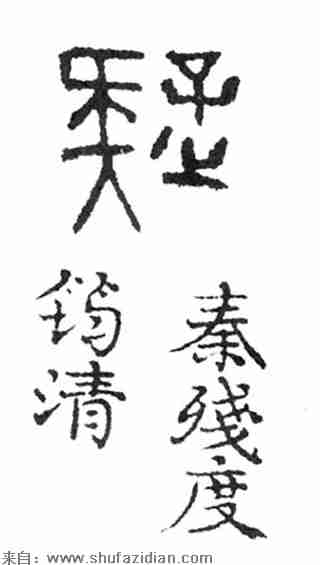 疑
秦殘度
筠清
来自：www.shufazidian.com